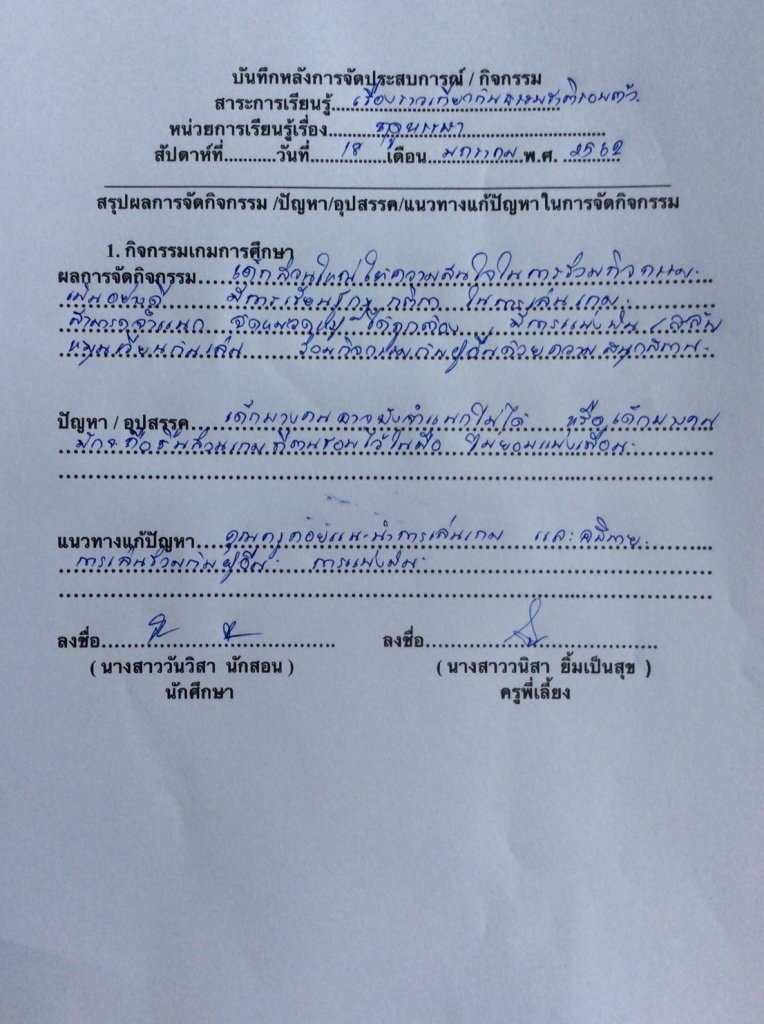 บันทึกหลังการจัดประสบการณ์ / กิจกรรม
สาระการเรียนรู้....เรื่องราวเกี่ยวกับธรรมชาติรอบตัว.
หน่วยการเรียนรู้เรื่อง.........ฤดูหรรษา..............................
สัปดาห์ที่...........วันที่......18......เดือน...มกราคม...พ.ศ. ..2562..
สรุปผลการจัดกิจกรรม /ปัญหา/อุปสรรค/แนวทางแก้ปัญหาในการจัดกิจกรรม
1. กิจกรรมเกมการศึกษา
ผลการจัดกิจกรรม.......เด็กส่วนใหญ่ให้ความสนใจในการร่วมกิจกรรม
เป็นอย่างดี มีการเรียนรู้กฎ กติกา ในการเล่นเกม
สามารถจำแนก จัดหมวดหมู่ได้ถูกต้อง มีการแบ่งปัน สลับ
หมุนเวียนกันเล่น ร่วมกิจกรรมกับผู้อื่นด้วยความสนุกสนาน
ปัญหา / อุปสรรค......เด็กบางคนอาจยังจำแนกไม่ได้ หรือ เด็กบางคน
มักจะถือชิ้นส่วนเกมที่ตนชอบไว้ในมือ ไม่ยอมแบ่งเพื่อน
แนวทางแก้ปัญหา......คุณครูคอยแนะนำการเล่นเกม และอธิบาย
การเล่นร่วมกับผู้อื่น การแบ่งปัน
ลงชื่อ........................................ ลงชื่อ........................................
( นางสาววันวิสา นักสอน ) ( นางสาววนิสา ยิ้มเป็นสุข )
นักศึกษา ครูพี่เลี้ยง